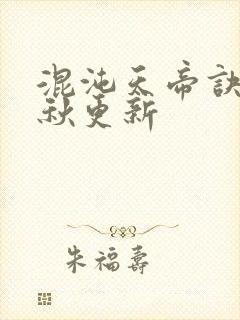 混沌天帝訣
秋更新
朱福壽